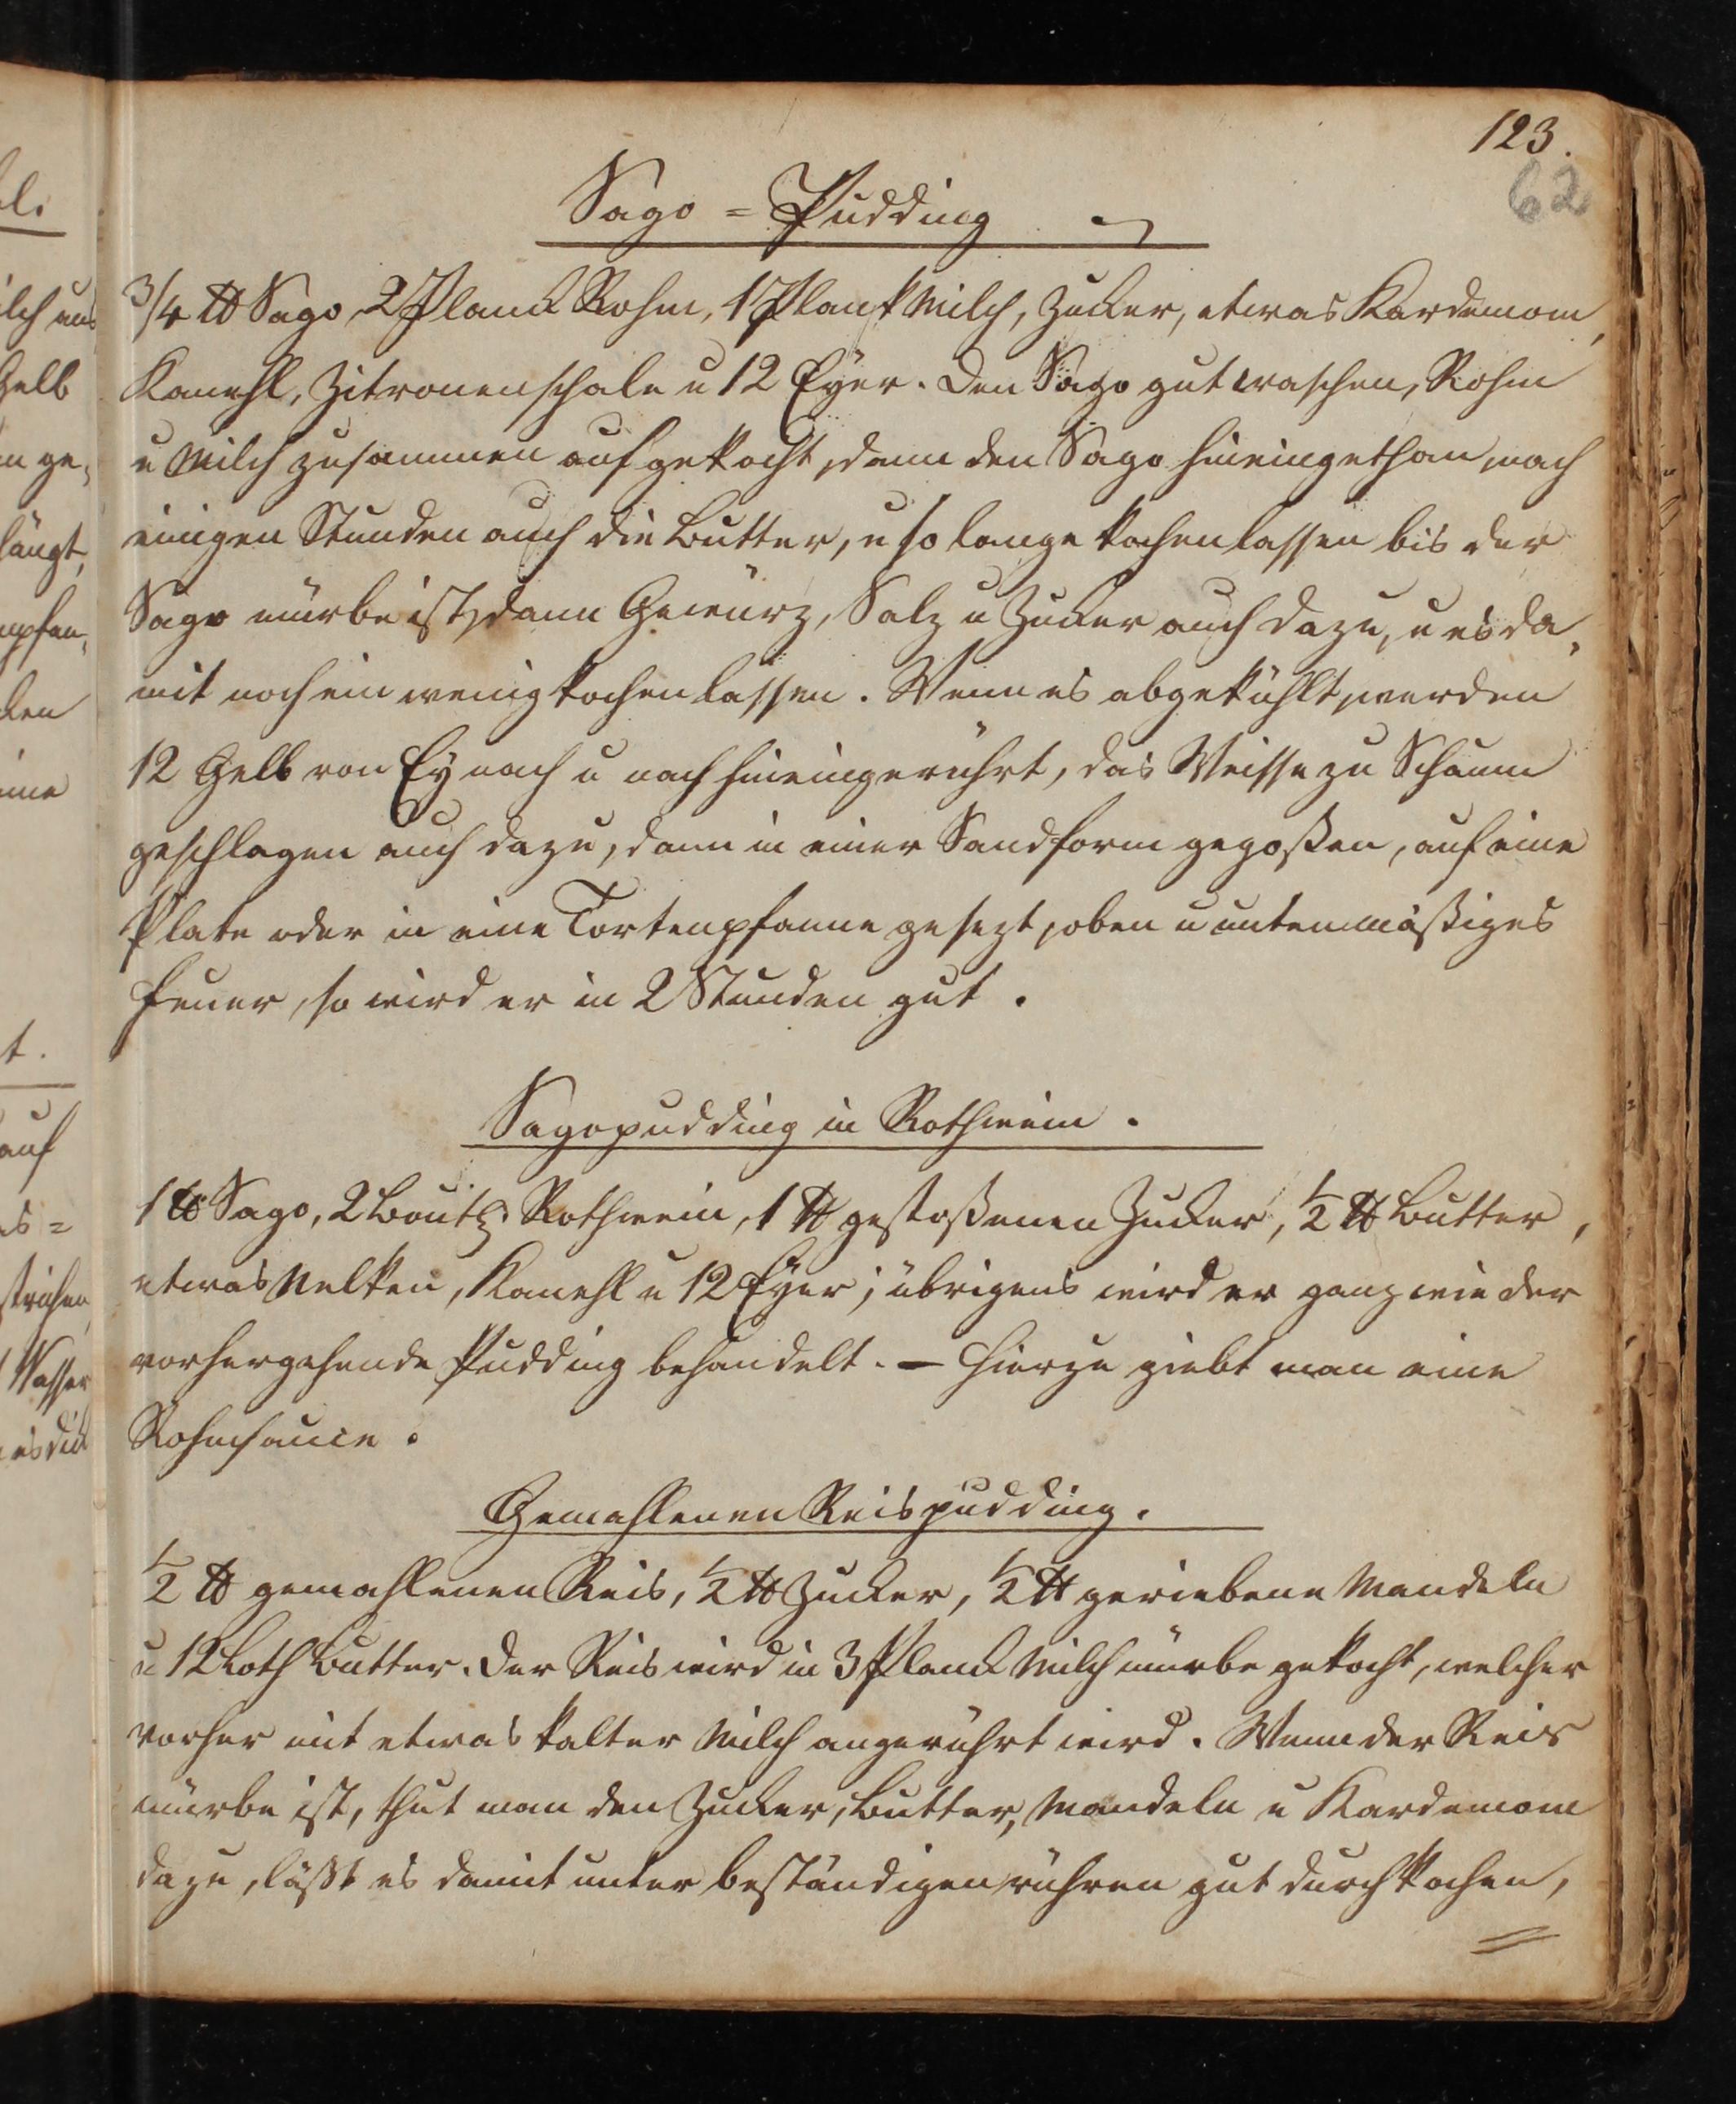 123.
62
Sago = Pudding
3/4 ℔ Sago, 2 Planck Rohm, 1 Plank Milch, Zucker, etwas Kardemom,
Kanehl, Zitronenschale u 12 Eÿer. Den Sago gut waschen, Rohm
u Milch zusammen aufgekocht, dann den Sago hineingethan, nach
einigen Stunden auch die Butter, u so lange kochen lassen bis der
Sago mürbe ist, dann Gewürz, Salz u Zucker auch dazu, u es da,
mit noch ein wenig kochen lassen. Wenn es abgekühlt, werden
12 Gelb von Eÿ nach u nach hineingerührt, das Weisse zu Schaum
geschlagen auch dazu, dann in einer Sandform gegoßen, auf eine
Plate oder in eine Tortenpfanne gesezt, oben u unten mäßiges
Feuer, so wird er in 2 Stunden gut.
Sagopudding in Rothwein.
1 ℔ Sago, 2 Boutl. Rothwein, 1 ℔ gestoßenen Zucker, 1/2 ℔ Butter,
etwas Nelken, Kanehl u 12 Eÿer; übrigens wird er ganz wie der
vorhergehende Pudding behandelt. — Hierzu giebt man eine
Rohmsauce.
Gemahlenen Reispudding.
1/2 ℔ gemahlenen Reis, 1/2 ℔ Zucker, 1/2 ℔ geriebene Mandeln
u 12 Loth Butter. Der Reis wird in 3 Planck Milch mürbe gekocht, welcher
vorher mit etwas kalter Milch angerührt wird. Wenn der Reis
mürbe ist, thut man den Zucker, Butter, Mandeln u Kardemom
dazu, läßt es damit unter beständigen rühren gut durchkochen,